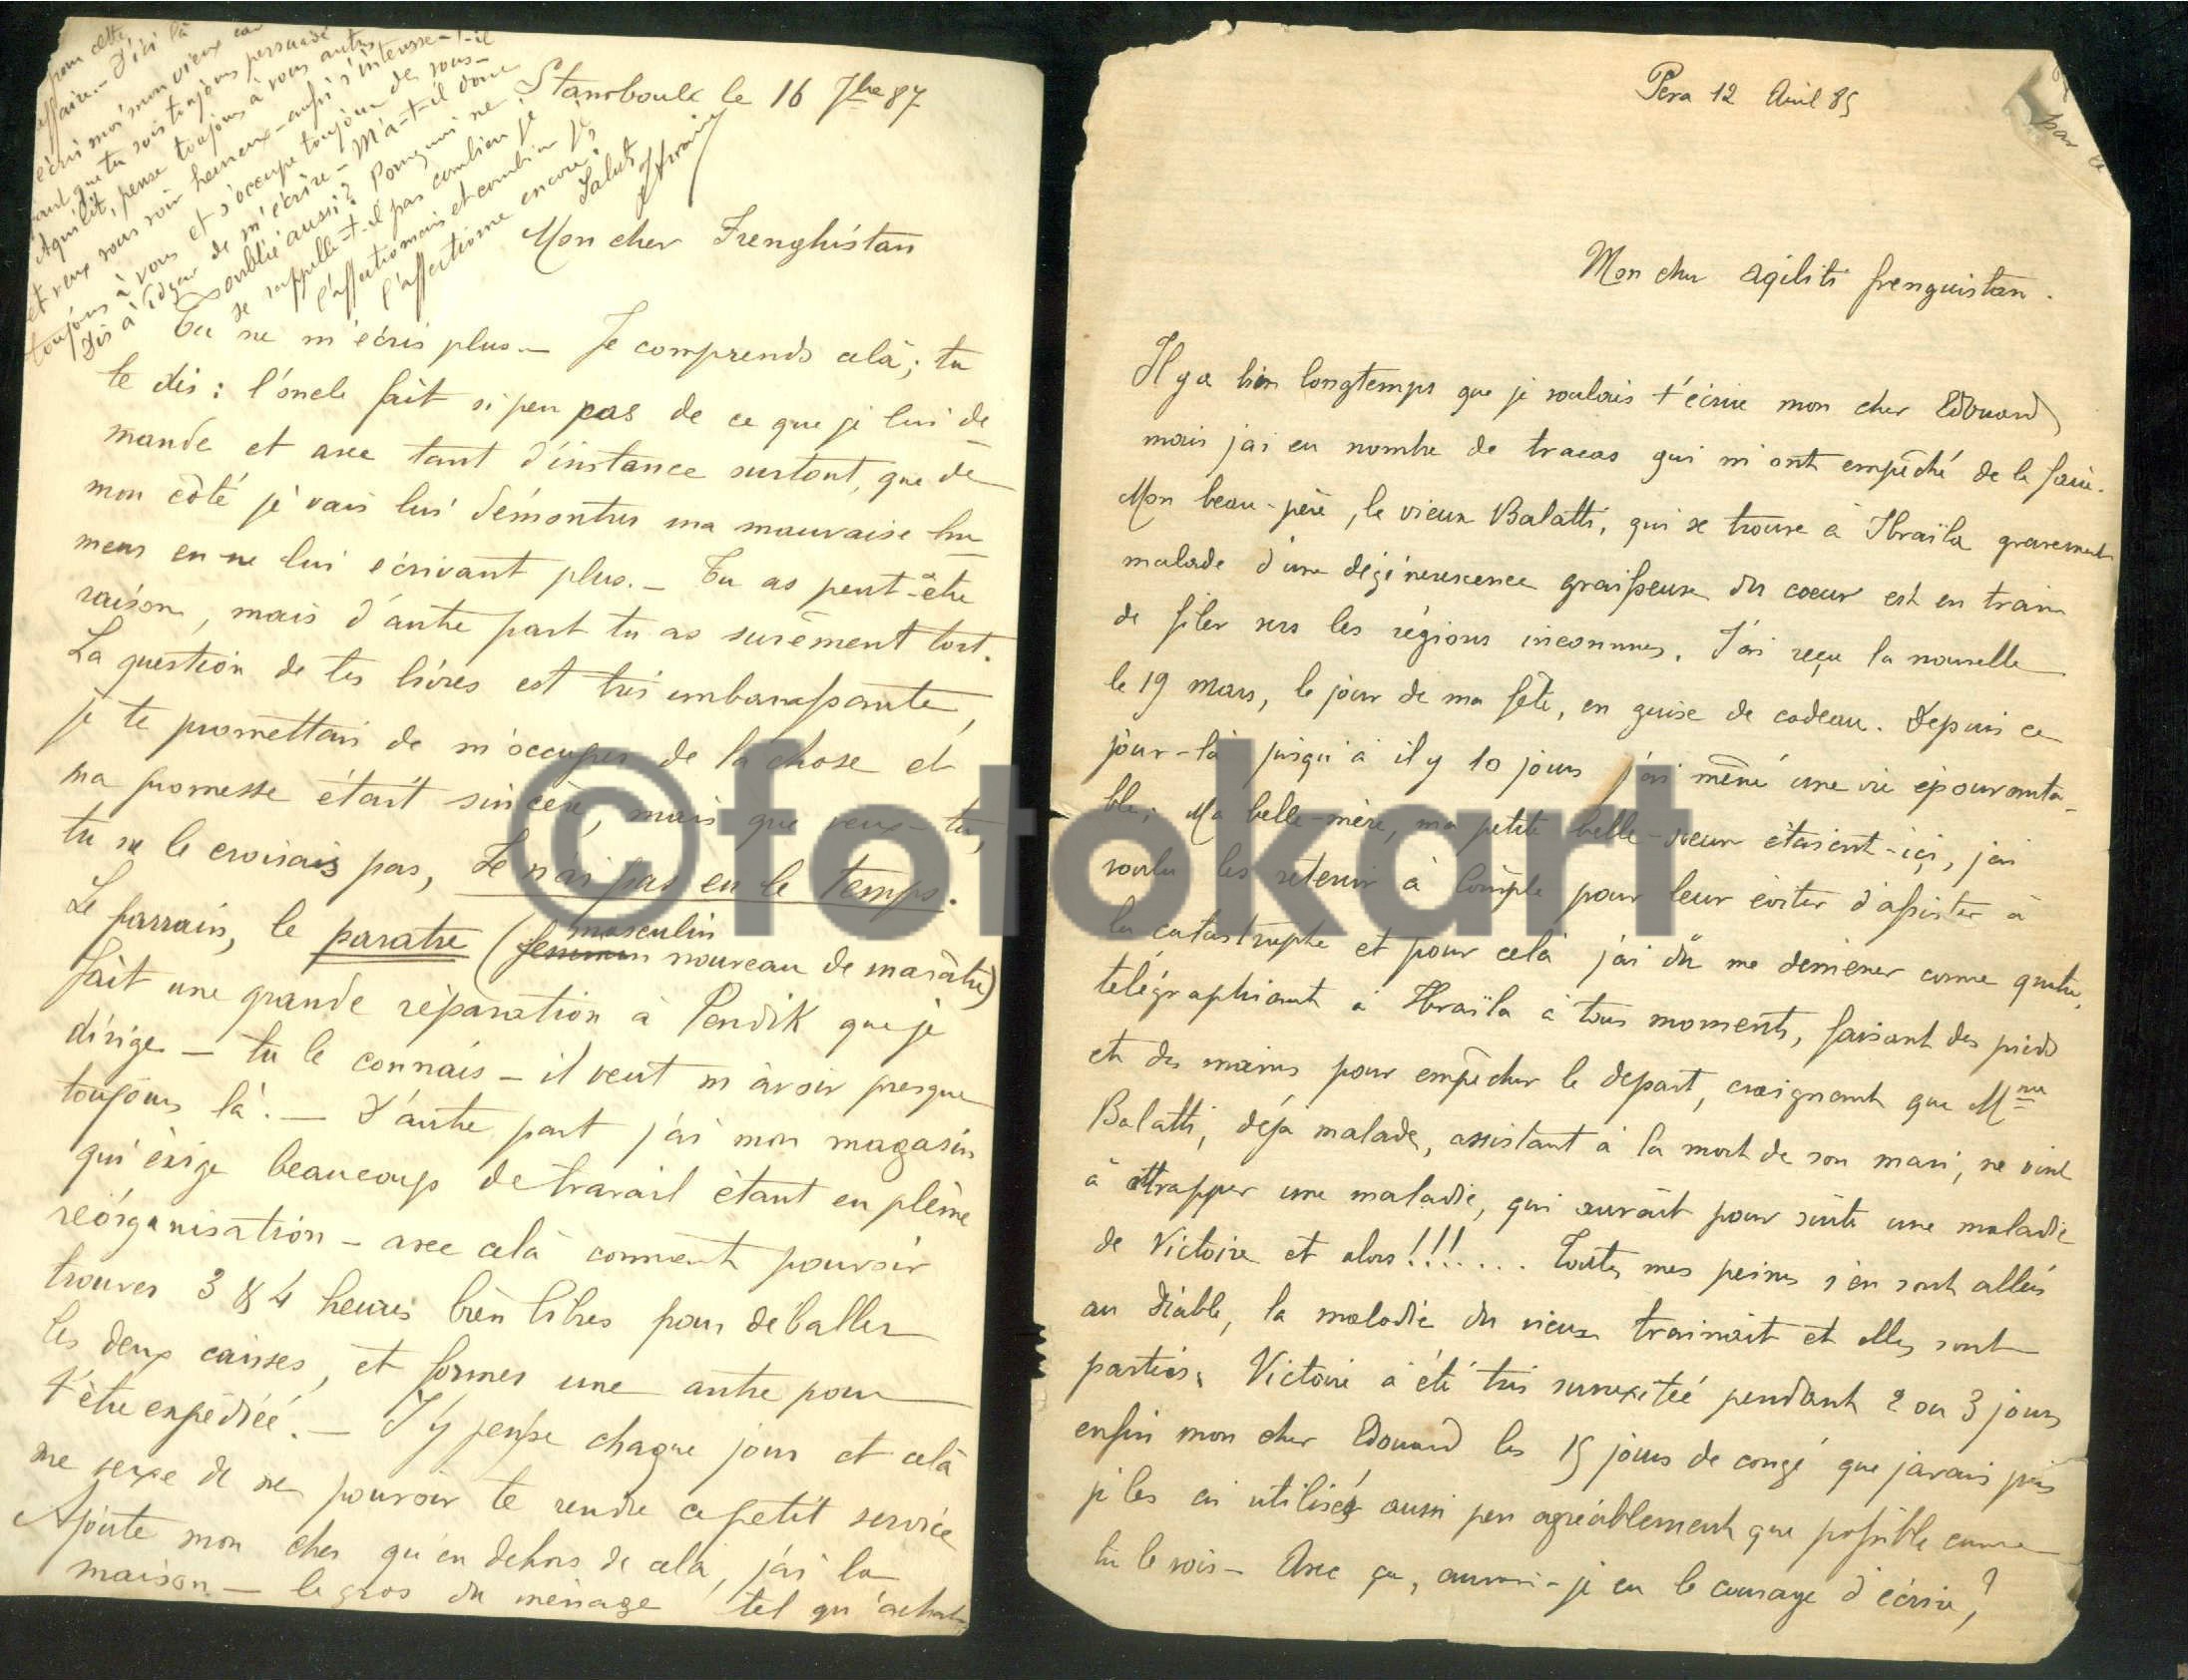 Stamboule le 16 7bre 87
Mon cher Frenghistan
Tu ne m'écris plus. — Je comprends celà; tu
te dis : l'oncle fait si peu pas de ce que je lui de
mande et avec tant d'instance surtout, que de
mon côté je vais lui démontrer ma mauvaise hu
meur en ne lui écrivant plus. — Tu as peut-être
raison, mais d'autre part tu as surement tort.
La question de tes livres est très embarassante,
je te promettais de m'occuper de la chose et
ma promesse était sincère, mais que veux-tu,
tu ne le croisais pas, Je n'ai pas eu le temps.
Le parrain, le paratre (masculin nouveau de marâtre)
fait une grande réparation à Pendik que je
dirige — tu le connais — il veut m'avoir presque
toujours là. — D'autre part j'ai mon magasin
qui exige beaucoup de travail étant en pleine
réorganisation — avec celà comment pouvoir
trouver 3 & 4 heures bien libres pour déballer
les deux caisses, et former une autre pour
t'être expédiée. — J'y pense chaque jour et celà
me vexe de ne pouvoir te rendre ce petit service
Ajoute mon cher qu'en dehors de celà, j'ai la
maison — le gros du ménage tel qu'achat
pour cette
affaire. — D'ici là
écris moi mon vieux car
tant que tu sois toujours persuadé
Aquilit, pense toujours à vous autres
et veux vous voir heureux — aussi s'interesse-t-il
toujours à vous et s'occupe toujours de vous —
Dis à Edgar de m'écrire — M'a-t-il donc
oublié aussi? Pourquoi ne
se rappelle-t-il pas combien je
l'affectionnais et combien je
l'affectionne encore?
Salut
Pera 12 Avril 85
par le
Mon cher agiliti frenguistan.
Il y a bien longtemps que je voulais t'écrire mon cher Edouard
mais j'ai eu nombre de tracas qui m'ont empêché de le faire.
Mon beau-père, le vieux Balatti, qui se trouve à Ibraïla gravement
malade d'une dégénerescence graisseuse du coeur est en train
de filer vers les régions inconnues. J'ai reçu la nouvelle
le 19 mars, le jour de ma fête, en guise de cadeau. Depuis ce
jour-là jusqu'à il y 10 jours j'ai mené une vie épouvanta-
ble; Ma belle-mère, ma petite belle-soeur étaient-ici, j'ai
voulu les retenir à Constple pour leur éviter d'assister à
la catastrophe et pour celà j'ai dû me demener comme quatre,
telégraphiant à Ibraïla à tous moments, faisant des pieds
et des mains pour empêcher le départ, craignant que Mme
Balatti, déjà malade, assistant à la mort de son mari, ne vint
à attrapper une maladie, qui aurait pour suite une maladie
de Victoire et alors!!!..... Toutes mes peines s'en sont allées
au diable, la maladie du vieux trainait et elles sont
parties. Victoire à été très surexitée pendant 2 ou 3 jours
enfin mon cher Edouard les 15 jours de congé que j'avais pris
je les ai utilisés aussi peu agréablement que possible comme
tu le vois — Avec ça, aurais-je eu le courage d'écrire,?
©fotokart